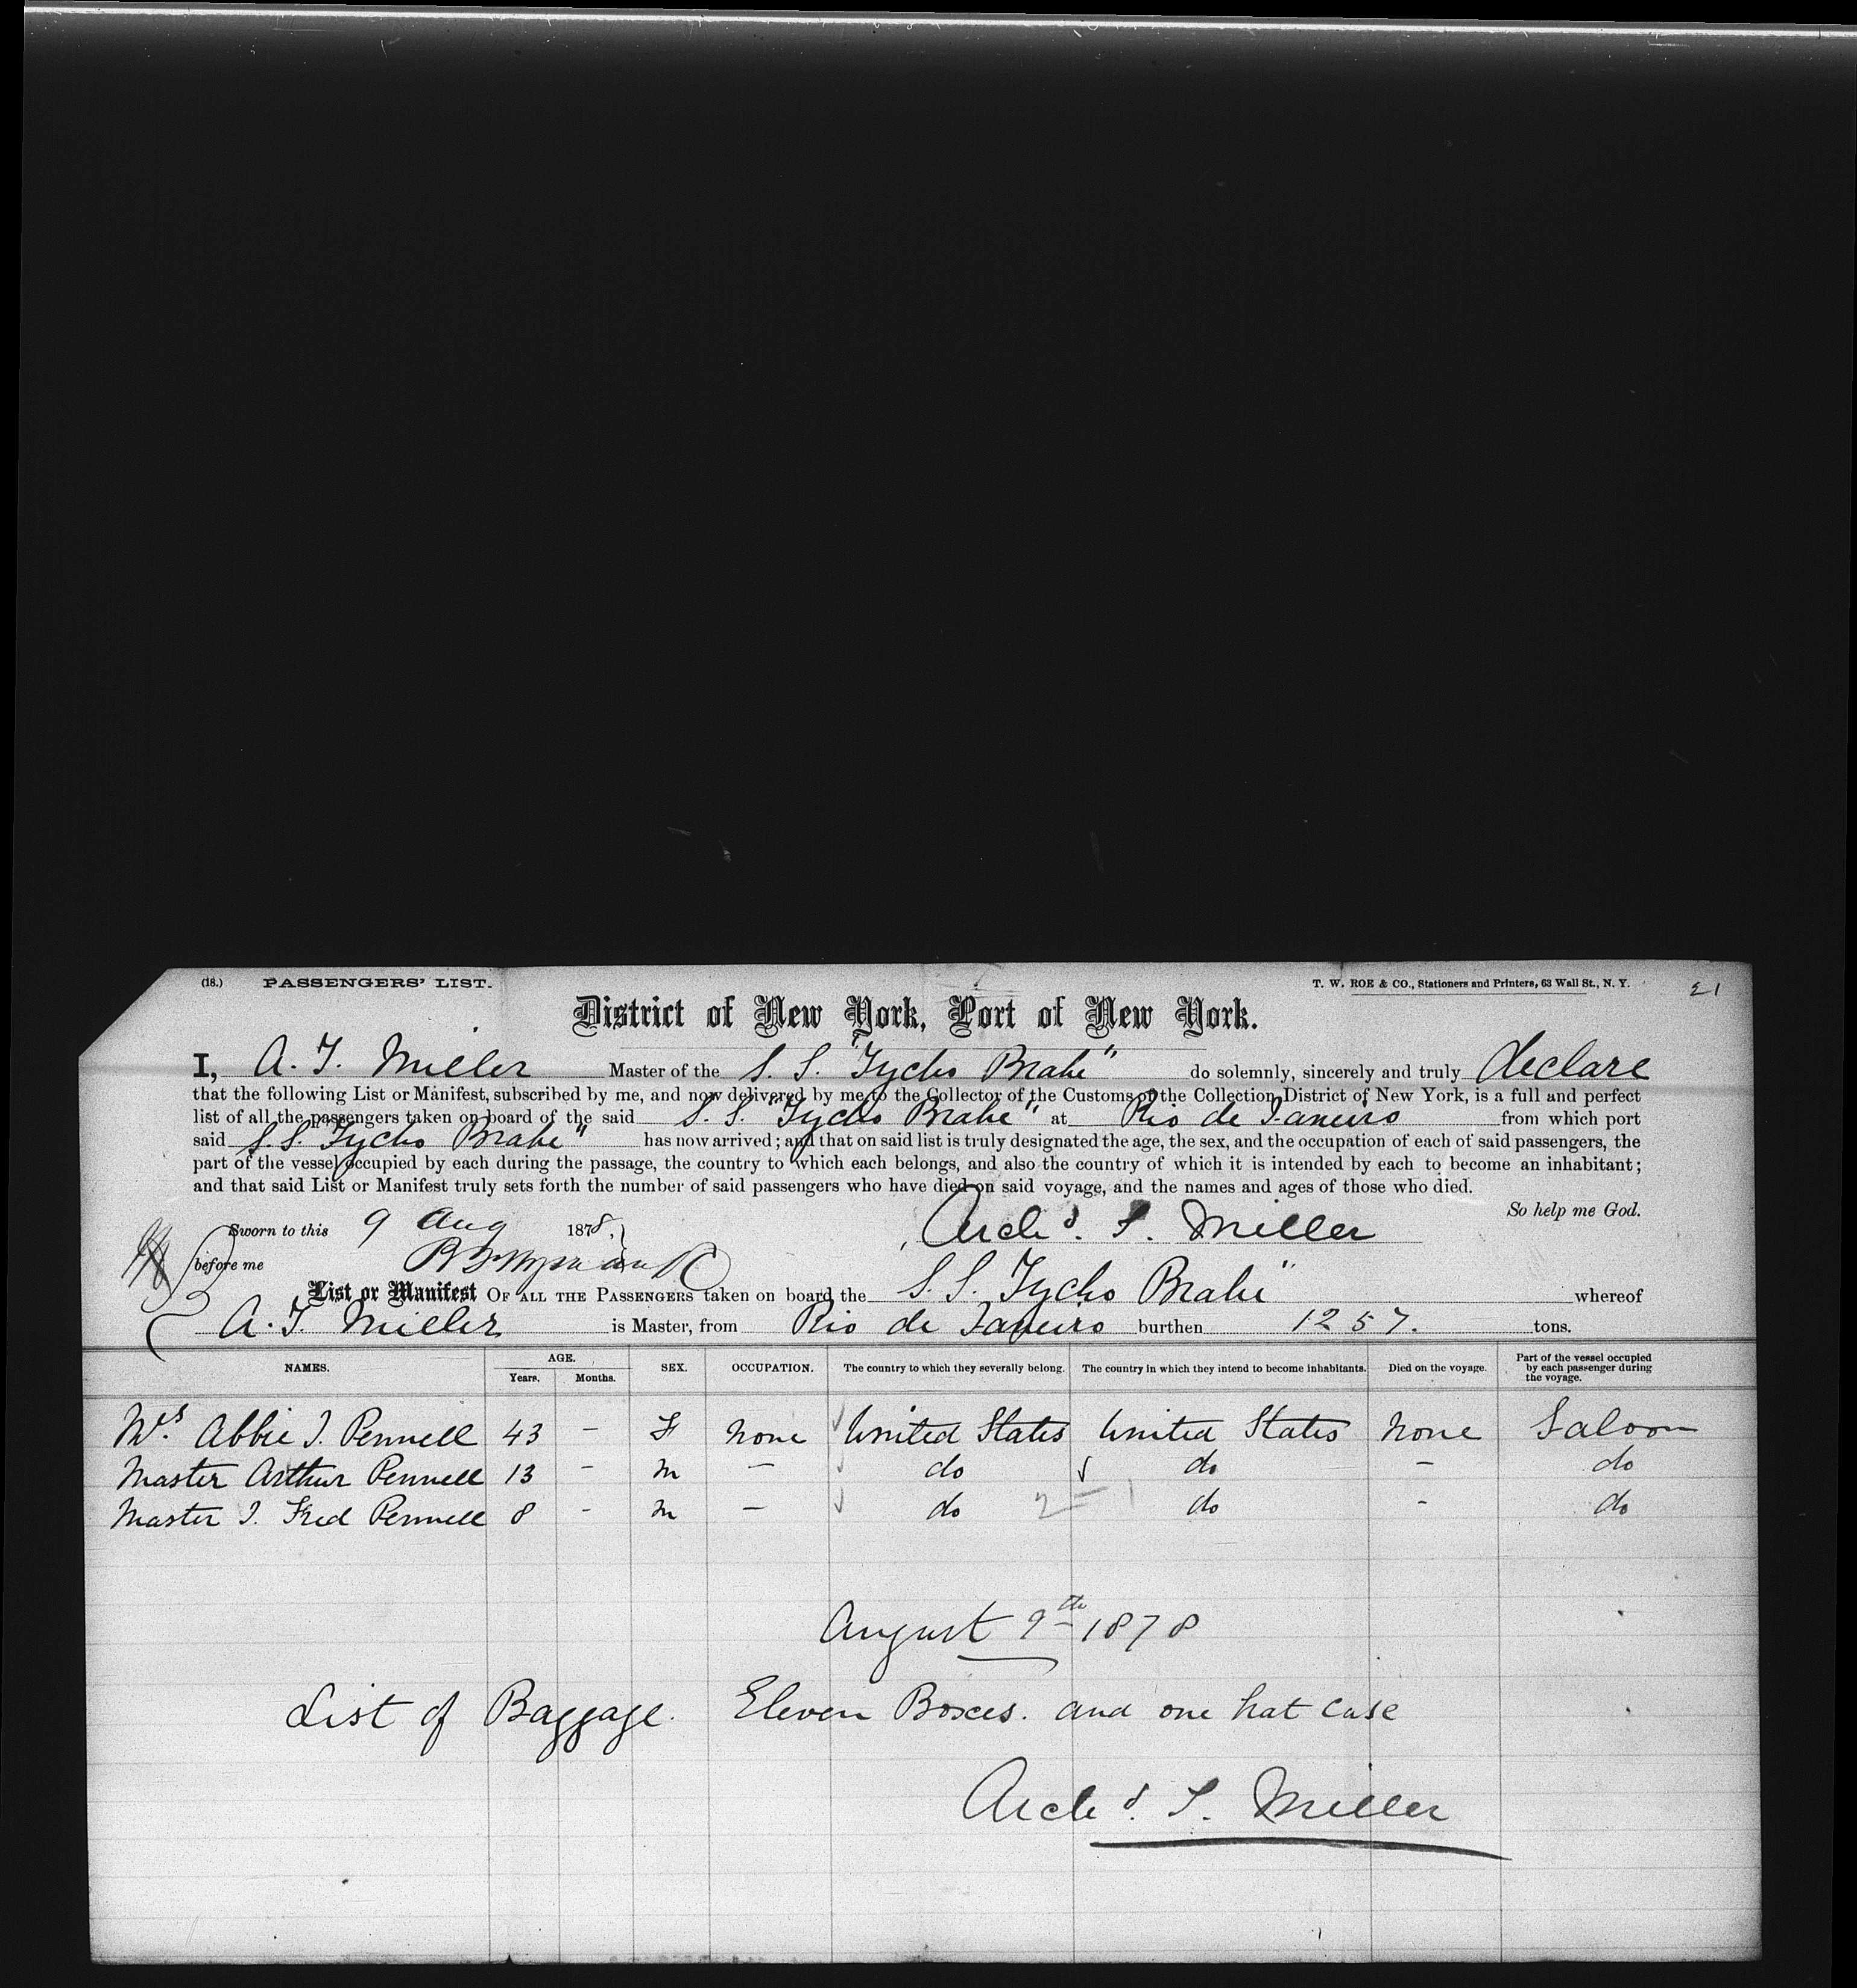 (18.) PASSENGERS' LIST. T. W. ROE & CO., Stationers and Printers, 63 Wall St., N. Y. 21
District of New York, Port of New York.
I, A. T. Miller Master of the S. S. "Tycho Brahe" do solemnly, sincerely and truly declare
that the following List or Manifest, subscribed by me, and now delivered by me to the Collector of the Customs of the Collection District of New York, is a full and perfect
list of all the passengers taken on board of the said S. S. "Tycho Brahe" at Rio de Janeiro from which port
said S. S. "Tycho Brahe" has now arrived; and that on said list is truly designated the age, the sex, and the occupation of each of said passengers, the
part of the vessel occupied by each during the passage, the country to which each belongs, and also the country of which it is intended by each to become an inhabitant;
and that said List or Manifest truly sets forth the number of said passengers who have died on said voyage, and the names and ages of those who died.
So help me God.
Sworn to this 9 Aug 1878, Archd. T. Miller
before me
List or Manifest OF ALL THE PASSENGERS taken on board the S. S. Tycho Brahe" whereof
A. T. Miller is Master, from Rio de Janeiro burthen 1257. tons.
NAMES. AGE. Years. Months. SEX. OCCUPATION. The country to which they severally belong. The country in which they intend to become inhabitants. Died on the voyage. Part of the vessel occupied by each passenger during the voyage.
Mrs. Abbie J. Pennell 43 - F None United States United States None Saloon
Master Arthur Pennell 13 - M - do do - do
Master J. Fred Pennell 8 - M - do do - do
August 9th 1878
List of Baggage. Eleven Boxes. and one hat case
Archd. T. Miller